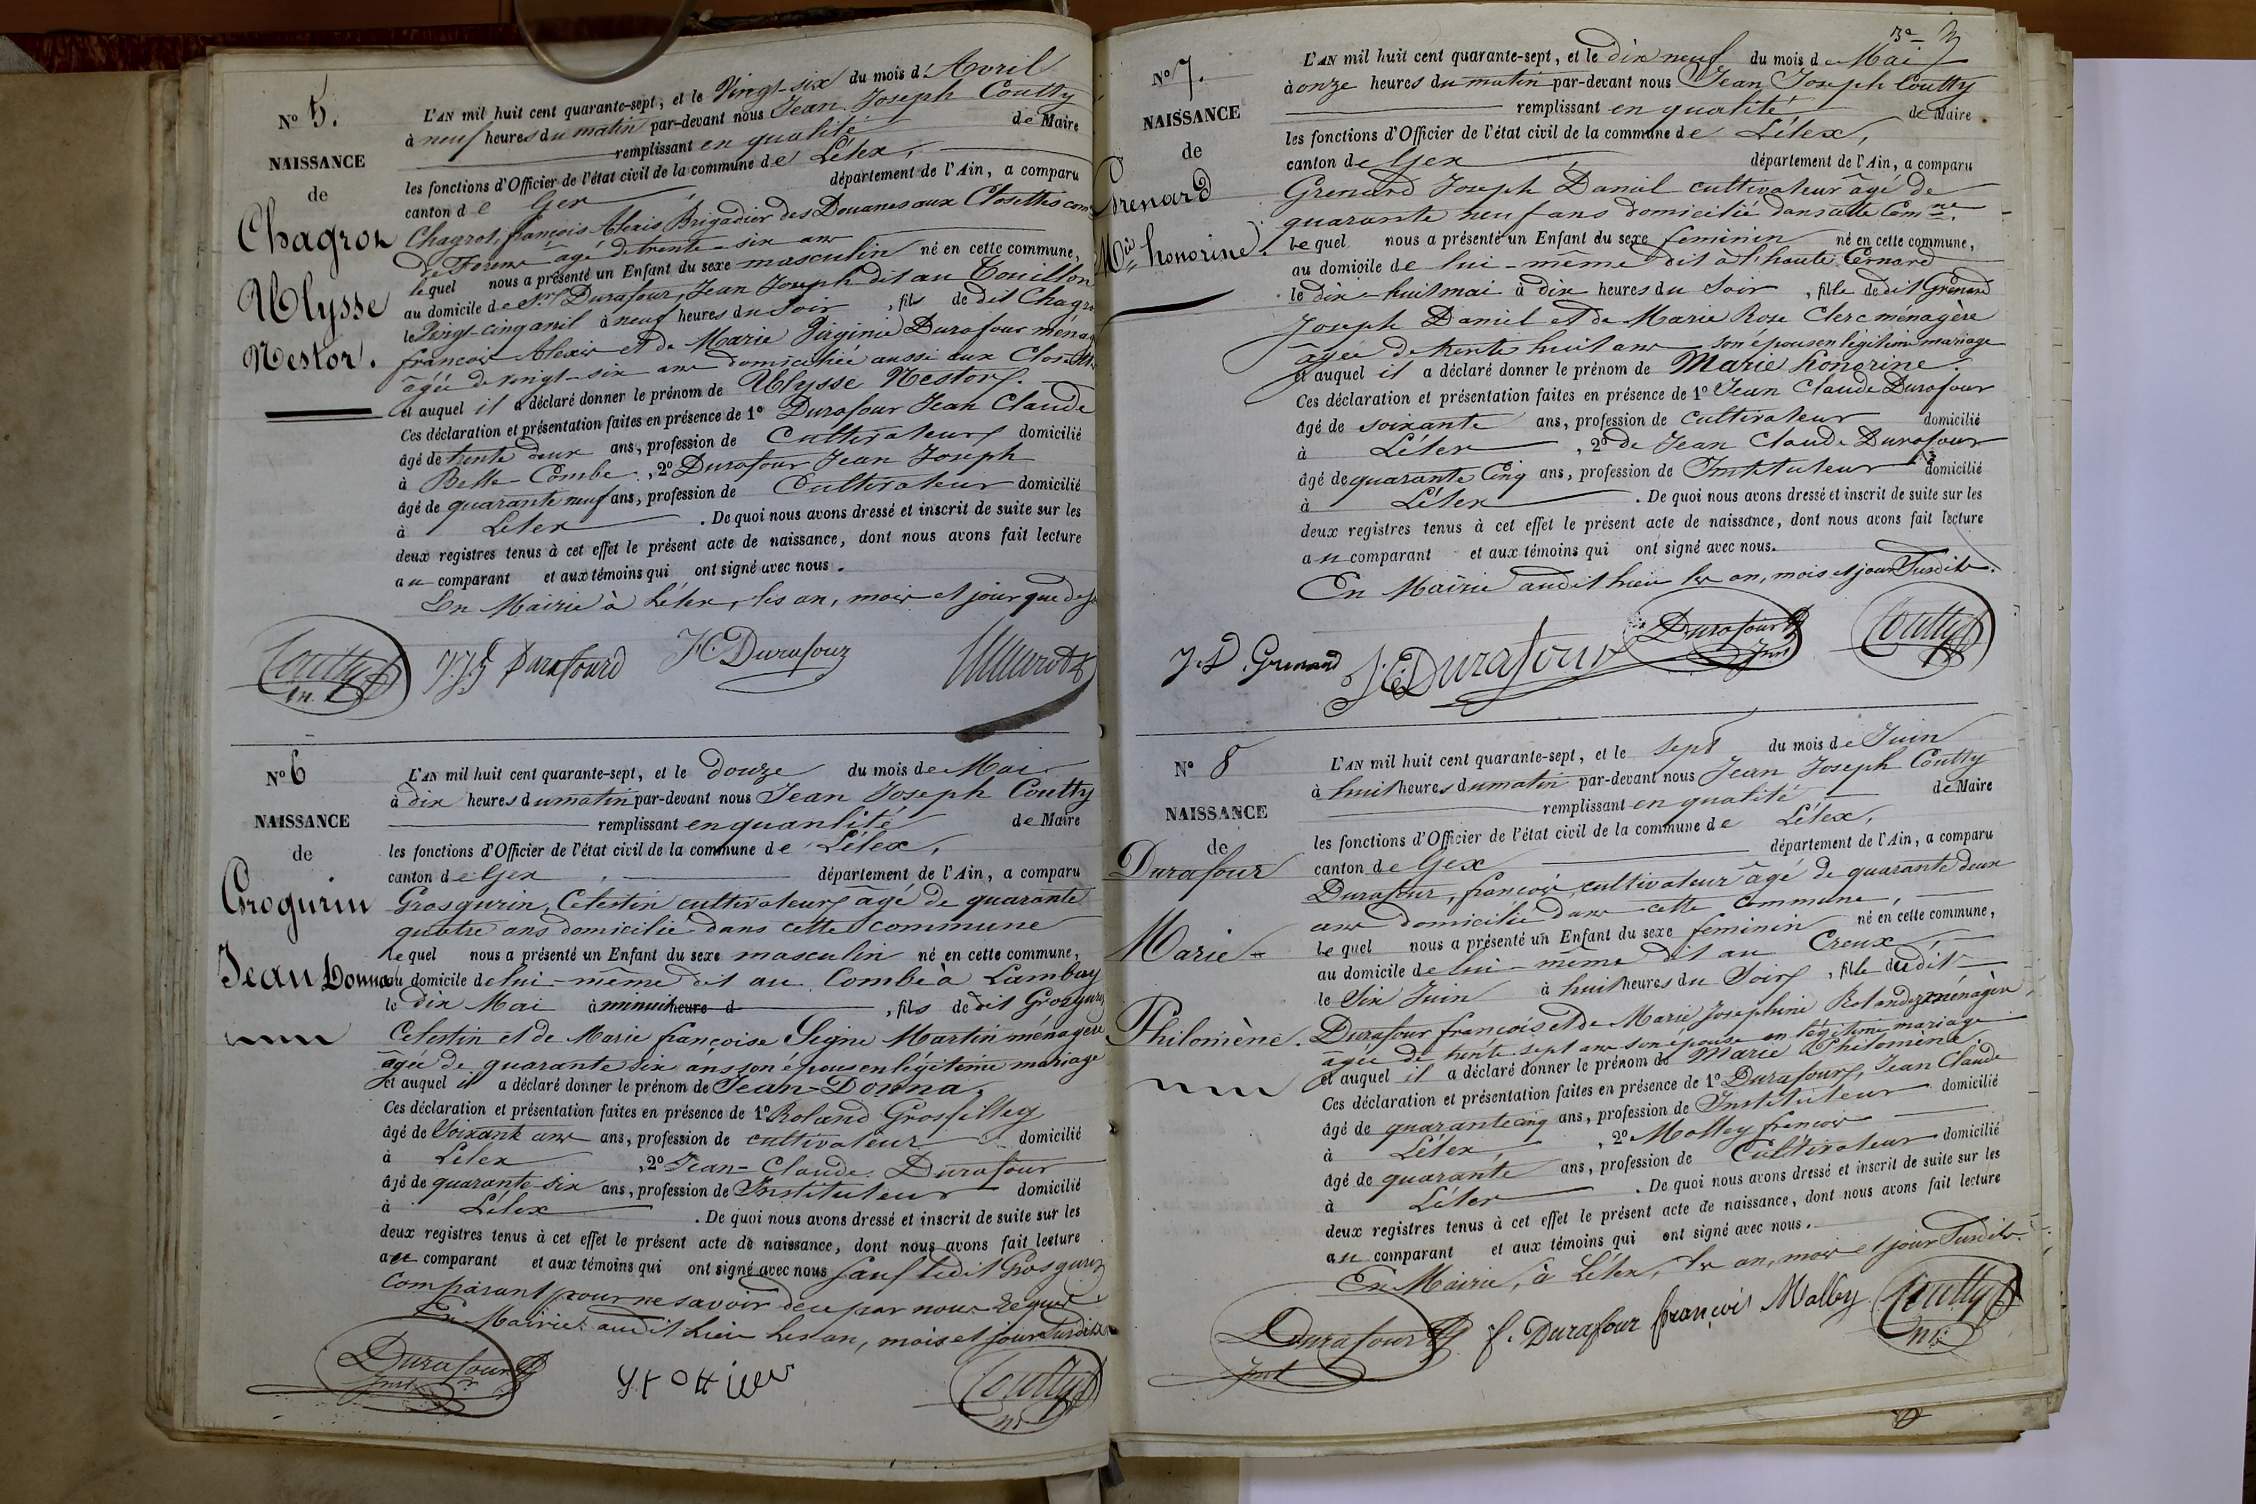 N° 5.
NAISSANCE
de
Chagrot
Ulysse
Nestor.
L'AN mil huit cent quarante-sept, et le Vingt-six du mois d'Avril
à neuf heures du matin par-devant nous Jean Joseph Coutty
remplissant en qualité de Maire
les fonctions d'Officier de l'état civil de la commune de Lélex,
canton de Gex département de l'Ain, a comparu
Chagrot, françois Alexis Brigadier des Douanes aux Closettes com
de Forens âgé de trente-six ans
lequel nous a présenté un Enfant du sexe masculin né en cette commune,
au domicile de Sr Durafour, Jean Joseph dit au Touillon
le Vingt-cinq avril à neuf heures du Soir, fils de dit Chagro
françois Alexis et de Marie Virginie Durafour ména
âgée de vingt-six ans domiciliée aussi aux Closettes
et auquel il a déclaré donner le prénom de Ulysse Nestor.
Ces déclaration et présentation faites en présence de 1° Durafour Jean Claude
âgé de trente deux ans, profession de Cultivateur domicilié
à Belle-Combe, 2° Durafour Jean Joseph
âgé de quarante neuf ans, profession de Cultivateur domicilié
à Lélex. De quoi nous avons dressé et inscrit de suite sur les
deux registres tenus à cet effet le présent acte de naissance, dont nous avons fait lecture
au comparant et aux témoins qui ont signé avec nous.
En Mairie à Lélex, les an, mois et jour que des
Coutty m. JJh Durafourd JC Durafour
N° 6
NAISSANCE
de
Grogurin
Jean Donna
L'AN mil huit cent quarante-sept, et le douze du mois de Mai
à dix heures du matin par-devant nous Jean Joseph Coutty
remplissant en quanlité de Maire
les fonctions d'Officier de l'état civil de la commune de Lélex,
canton de Gex, département de l'Ain, a comparu
Grosgurin, Celestin cultivateur âgé de quarante
quatre ans domicilié dans cette commune
lequel nous a présenté un Enfant du sexe masculin né en cette commune,
au domicile de lui-même dit au Combe à Lambay
le dix Mai à minuit heure d, fils de dit Grosgurin
Celestin et de Marie françoise Seigne Martin ménagère
âgée de quarante six ans son épouse en légitime mariage
et auquel il a déclaré donner le prénom de Jean-Donna,
Ces déclaration et présentation faites en présence de 1° Roland Grosfilley
âgé de Soixante ans ans, profession de cultivateur domicilié
à Lélex, 2° Jean-Claude Durafour
âgé de quarante-six ans, profession de Instituteur domicilié
à Lélex. De quoi nous avons dressé et inscrit de suite sur les
deux registres tenus à cet effet le présent acte de naissance, dont nous avons fait lecture
au comparant et aux témoins qui ont signé avec nous sauf ledit Grosgurin
Comparant pour ne savoir de ce par nous requi
En Mairie audit Lieu les an, mois et jour susdits
Durafour Inst.r Coutty m
3e
N° 7.
NAISSANCE
de
Grenard
Mie honorine.
L'AN mil huit cent quarante-sept, et le dix neuf du mois de Mai
à onze heures du matin par-devant nous Jean Joseph Coutty
remplissant en qualité de Maire
les fonctions d'Officier de l'état civil de la commune de Lélex,
canton de Gex département de l'Ain, a comparu
Grenard Joseph Daniel cultivateur âgé de
quarante neuf ans domicilié dans cette Comne.
lequel nous a présenté un Enfant du sexe feminin né en cette commune,
au domicile de lui-même dit à l'haute Cernard
le dix-huit mai à dix heures du Soir, fille de dit Grenard
Joseph Daniel et de Marie Rose Clerc ménagère
âgée de trente huit ans son épouse en légitime mariage
et auquel il a déclaré donner le prénom de Marie honorine.
Ces déclaration et présentation faites en présence de 1° Jean Claude Durafour
âgé de soixante ans, profession de cultivateur domicilié
à Lélex, 2° de Jean Claude Durafour
âgé de quarante Cinq ans, profession de Instituteur domicilié
à Lélex. De quoi nous avons dressé et inscrit de suite sur les
deux registres tenus à cet effet le présent acte de naissance, dont nous avons fait lecture
au comparant et aux témoins qui ont signé avec nous.
En Mairie audit lieu les an, mois et jour Susdits.
J.D. Grenard J.C. Durafour Durafour Inst Coutty
N° 8
NAISSANCE
de
Durafour
Marie
Philomène.
L'AN mil huit cent quarante-sept, et le sept du mois de Juin
à huit heures du matin par-devant nous Jean Joseph Coutty
remplissant en qualité de Maire
les fonctions d'Officier de l'état civil de la commune de Lélex,
canton de Gex département de l'Ain, a comparu
Durafour, françois, cultivateur âgé de quarante deux
ans domicilié dans cette commune,
lequel nous a présenté un Enfant du sexe feminin né en cette commune,
au domicile de lui-même dit au Creux,
le Six Juin à huit heures du Soir, fille dudit
Durafour françois et de Marie Josephine Rolandez ménagère,
âgée de trente-sept ans son épouse en légitime mariage
et auquel il a déclaré donner le prénom de Marie Philomène.
Ces déclaration et présentation faites en présence de 1° Durafour, Jean Claude
âgé de quarante cinq ans, profession de Instituteur domicilié
à Lélex, 2° Molley francois
âgé de quarante ans, profession de Cultivateur domicilié
à Lélex. De quoi nous avons dressé et inscrit de suite sur les
deux registres tenus à cet effet le présent acte de naissance, dont nous avons fait lecture
au comparant et aux témoins qui ont signé avec nous.
En Mairie, à Lélex, les an, mois et jour Susdits.
Durafour Inst f. Durafour françois Malley Coutty m